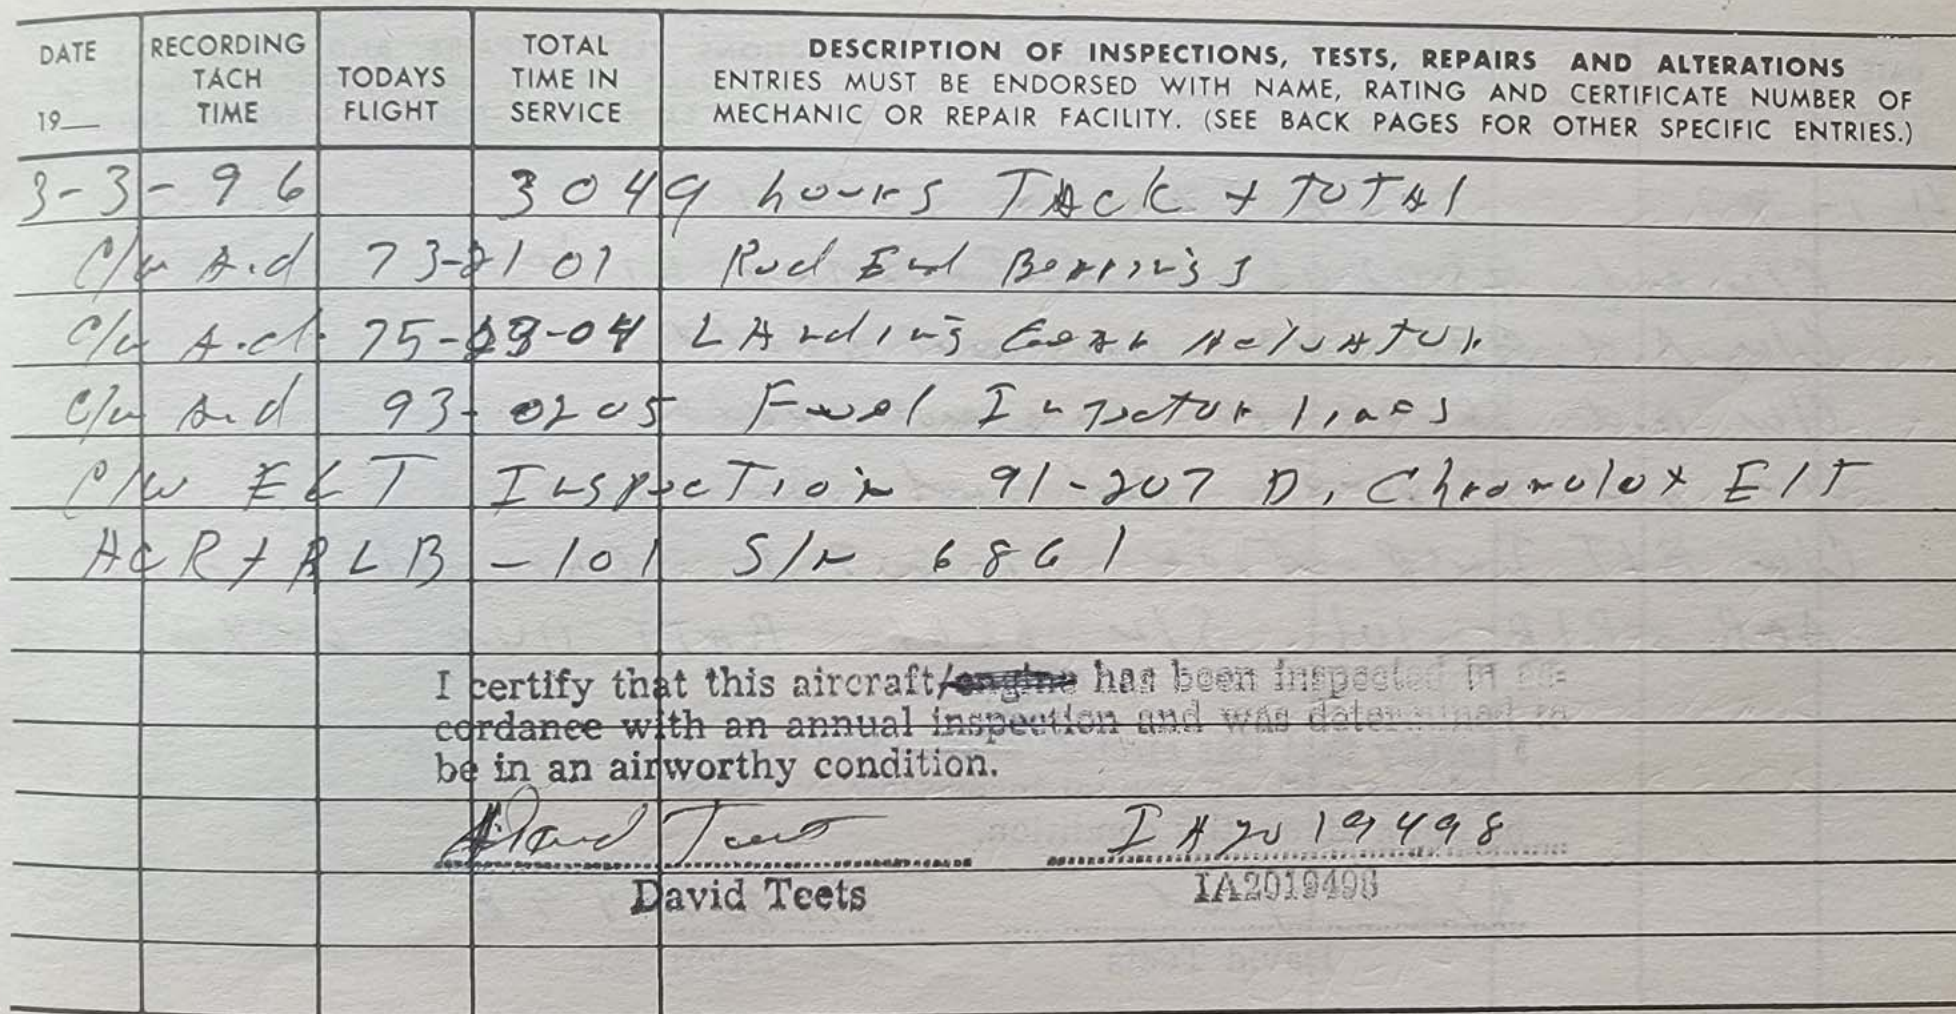 DATE 19__ RECORDING TACH TIME TODAYS FLIGHT TOTAL TIME IN SERVICE
DESCRIPTION OF INSPECTIONS, TESTS, REPAIRS AND ALTERATIONS
ENTRIES MUST BE ENDORSED WITH NAME, RATING AND CERTIFICATE NUMBER OF
MECHANIC OR REPAIR FACILITY. (SEE BACK PAGES FOR OTHER SPECIFIC ENTRIES.)
3-3-96 3049 hours TAck + TOTAl
C/w A.d 73-2101 Rod End Bearings
C/w A.d. 75-09-04 LAnding Gear Actuator
C/w A.d 93-0205 Fuel Injector lines
C/w ELT Inspection 91-207 D, Chromolox ElT
ACR + RLB -101 S/N 6861
I certify that this aircraft/engine has been inspected in ac-
cordance with an annual inspection and was determined to
be in an airworthy condition.
David Teets IA2019498
David Teets IA2019498